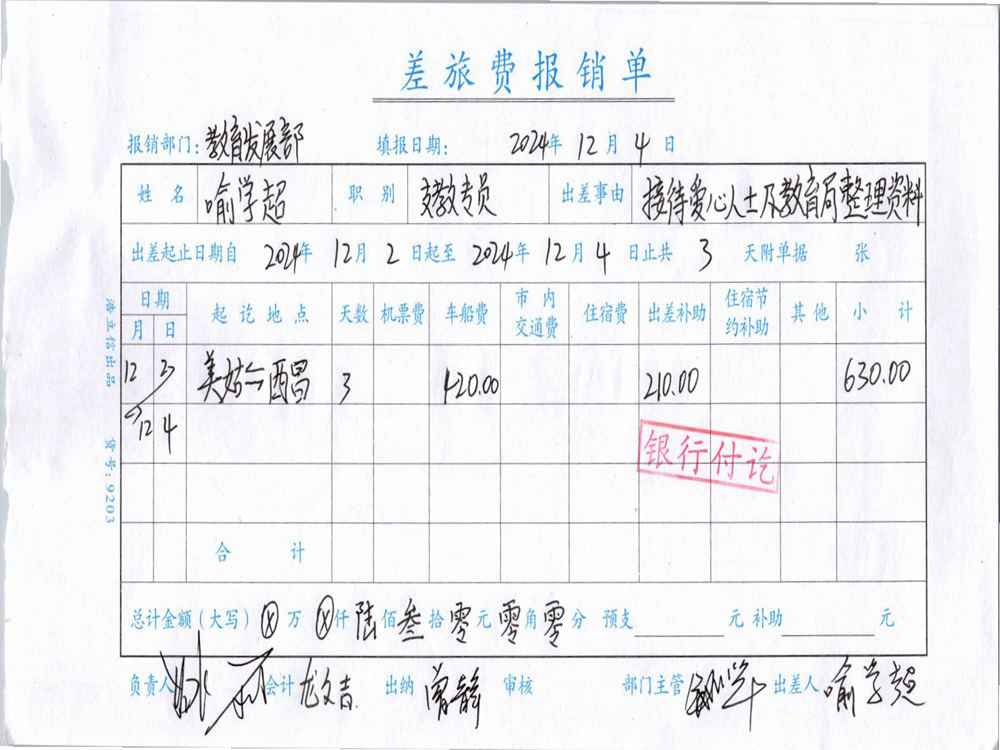 差旅费报销单
报销部门：教育发展部 填报日期： 2024年 12月 4日
姓名 喻学超 职别 支教专员 出差事由 接待爱心人士及教育局整理资料
出差起止日期自 2024年 12月 2日起至 2024年 12月 4日止共 3 天附单据 张
日期 起讫地点 天数 机票费 车船费 市内交通费 住宿费 出差补助 住宿节约补助 其他 小计
月 日
12 3 美姑⇆西昌 3 420.00 210.00 630.00
12 4
银行付讫
合计
总计金额（大写） ⊗万 ⊗仟 陆佰 叁拾 零元 零角 零分 预支 元 补助 元
负责人 会计 龙文吉 出纳 曾静 审核 部门主管 出差人 喻学超
浩立信出品 货号：9203